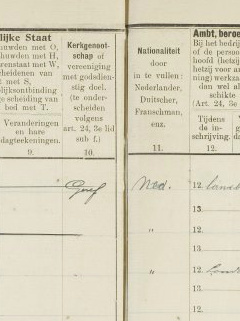 lijke Staat
huwden met O,
huwden met H,
renstaat met W,
cheidenen van
t met S,
lijksontbinding
te scheiding van
bed met T.
Veranderingen
en hare
dagteekeningen.
9.
Kerkgenoot-
schap of
vereeniging
met godsdien-
stig doel.
(te onder-
scheiden
volgens
art. 24, 3e lid
sub f.)
10.
Geref
Nationaliteit
door
in te vullen:
Nederlander,
Duitscher,
Franschman,
enz.
11.
Ned.
"
"
Ambt, beroe
Bij het bedrij
of de persoo
hoofd (hetzij
hetzij voor ar
ing) werkzaa
dan wel al
schikte
Art. 24, 3e
Tijdens
de in-
schrijving.
12.
12.
13.
12.
13.
12.
13.
12.